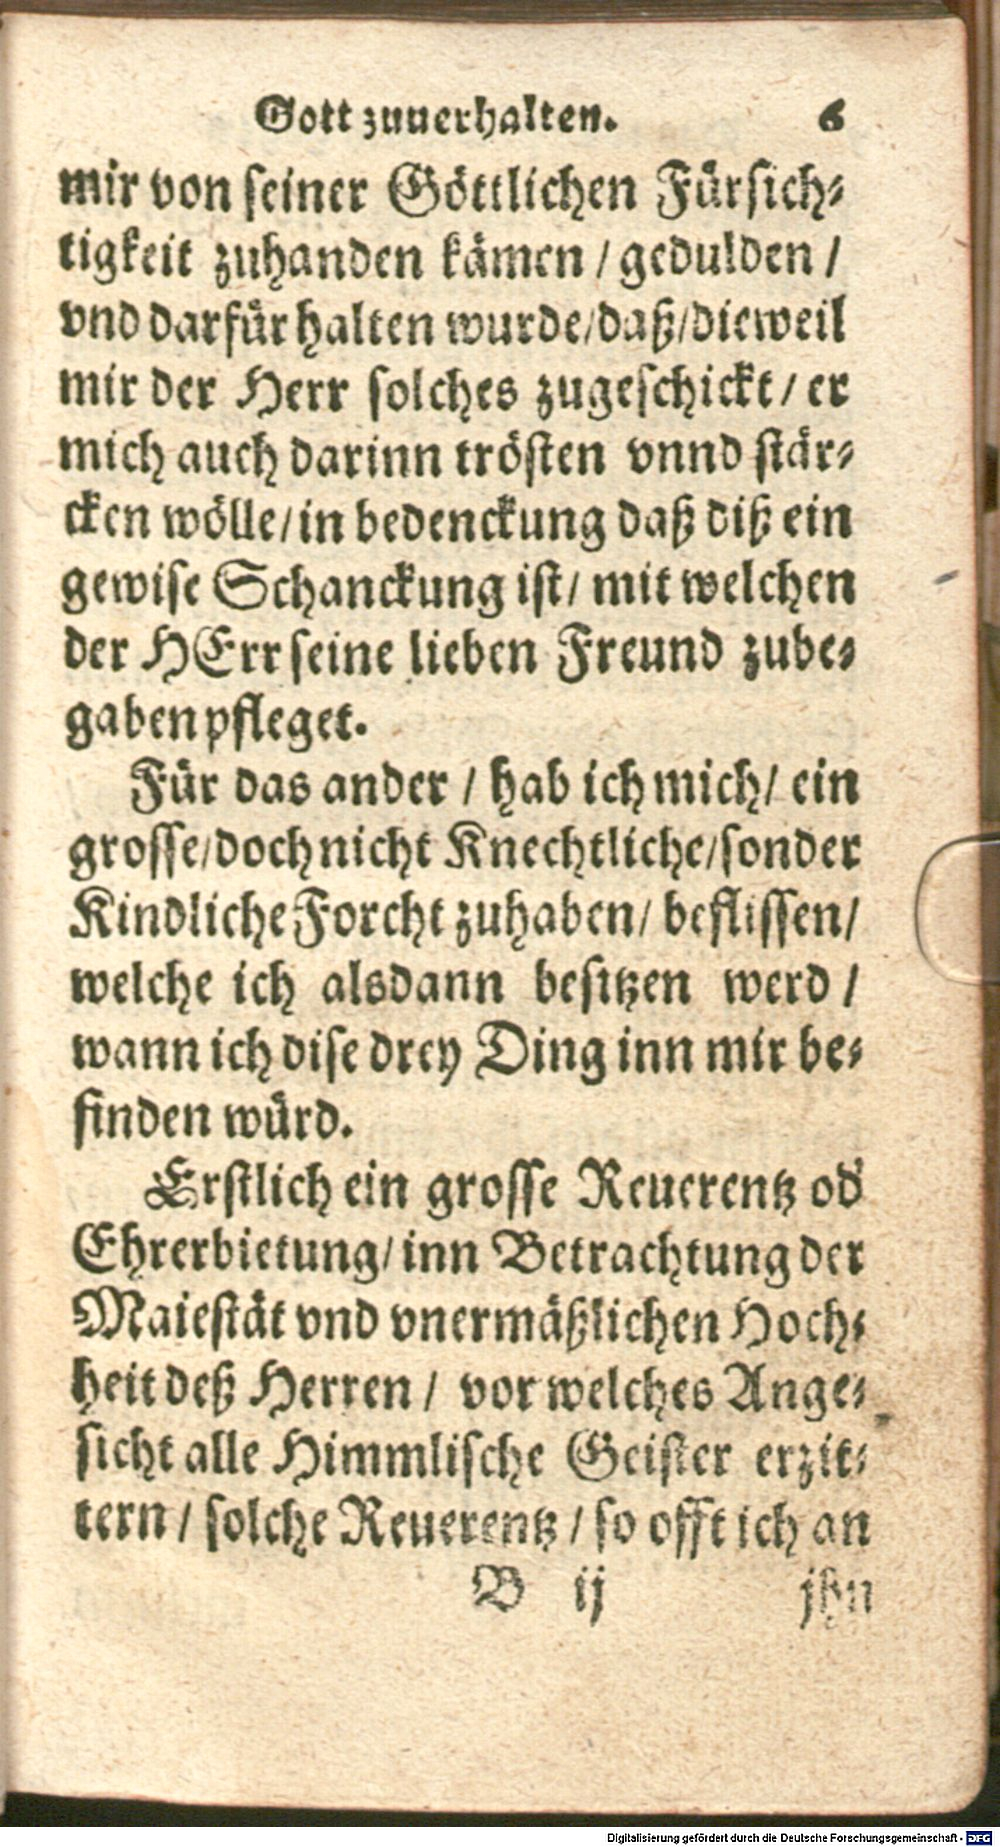 Gott zuuerhalten. 6
mir von seiner Göttlichen Fürsich⸗
tigkeit zuhanden kämen / gedulden /
vnd darfür halten wurde/daß/dieweil
mir der Herr solches zugeschickt / er
mich auch darinn trösten vnnd stär⸗
cken wölle/in bedenckung daß diß ein
gewise Schanckung ist/ mit welchen
der HErr seine lieben Freund zube⸗
gaben pfleget.
Für das ander / hab ich mich/ ein
grosse/doch nicht Knechtliche/sonder
Kindliche Forcht zuhaben/ beflissen/
welche ich alsdann besitzen werd /
wann ich dise drey Ding inn mir be⸗
finden würd.
Erstlich ein grosse Reuerentz od'
Ehrerbietung/ inn Betrachtung der
Maiestät vnd vnermäßlichen Hoch⸗
heit deß Herren / vor welches Ange⸗
sicht alle Himmlische Geister erzit⸗
tern / solche Reuerentz / so offt ich an
B ij jhn
Digitalisierung gefördert durch die Deutsche Forschungsgemeinschaft - DFG